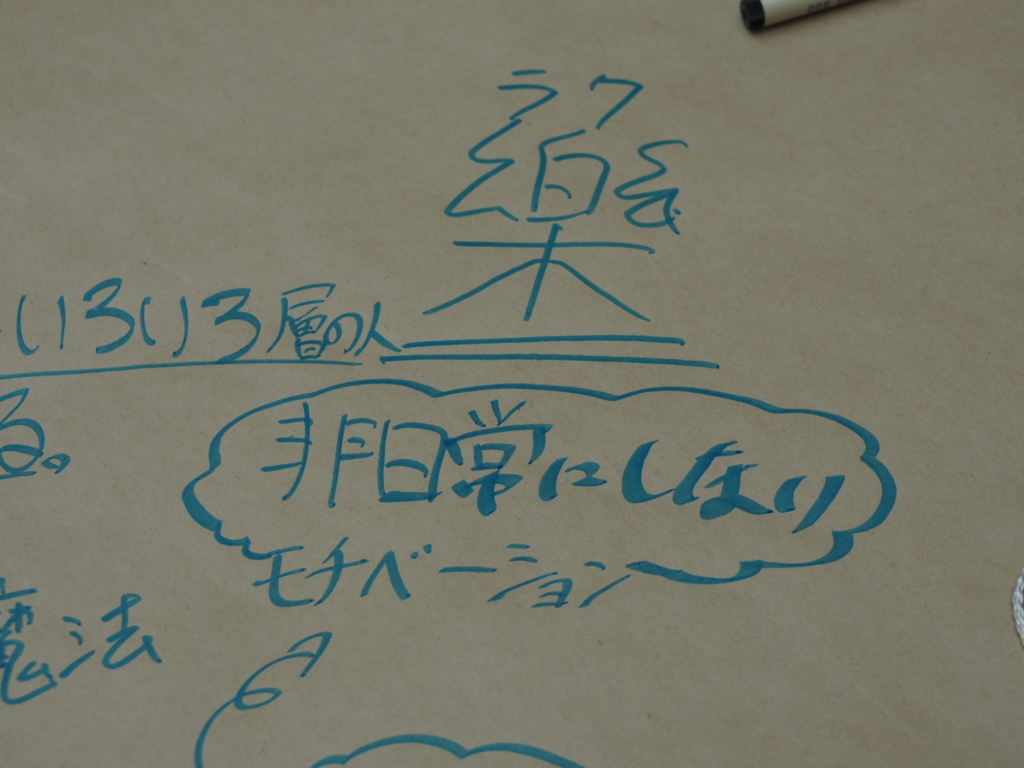 ラク
樂
いろいろ層の人
る。
非日常にしなり
モチベーション
魔法